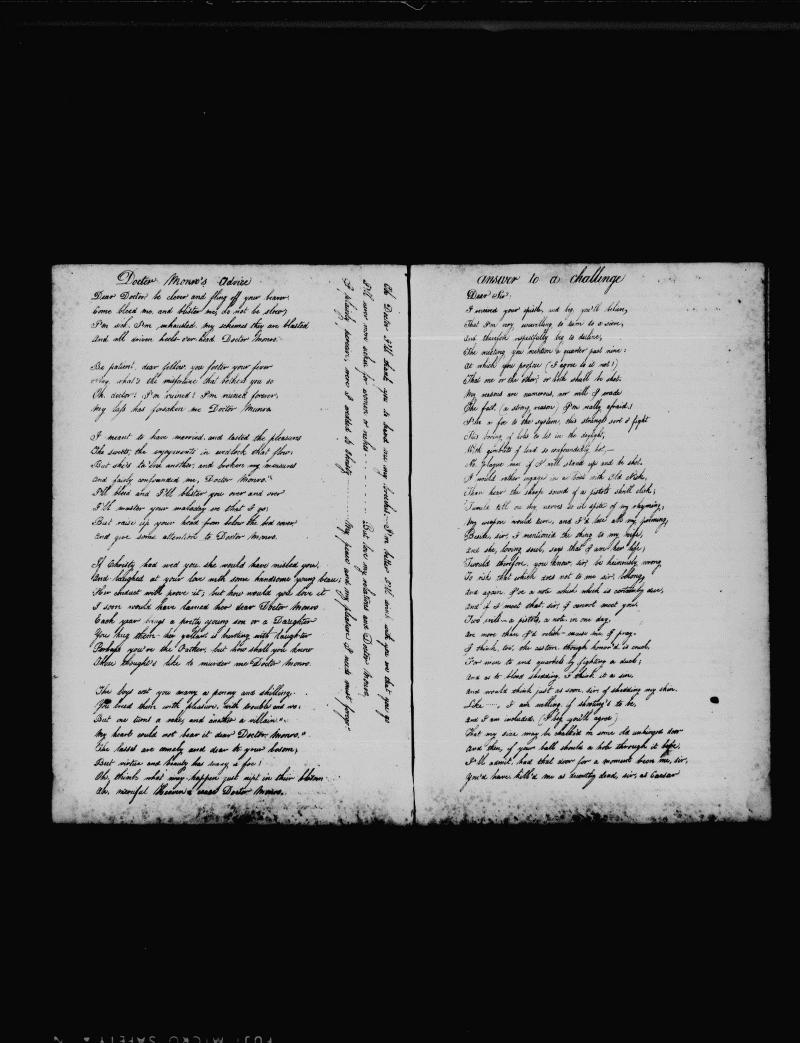 Doctor Monro's Advice
Dear Doctor be clever and fling off your beaver
Come bleed me, and blister me, do not be slow;
I'm sick, I'm exhausted, my schemes they are blasted
And all driven heels over head Doctor Monro.
Be patient, dear fellow you foster your fever
Pray what's the misfortune that bothers you so
Oh, doctor! I'm ruined! I'm ruined forever,
My lass has forsaken me Doctor Monro
I meant to have married, and tasted the pleasures
The sweets, the enjoyments in wedlock that flow;
But she's ta'en another, and broken my measures
And fairly confounded me, Doctor Monro."
I'll bleed and I'll blister you over and over
I'll master your malady ere that I go;
But raise up your head from below the bed cover
And give some attention to Doctor Monro.
If Christy had wed you she would have misled you,
And laughed at your love with some handsome young beau;
Her conduct will prove it; but how would you love it
I soon would have lamed her dear Doctor Monro
Each year brings a pretty young son or a Daughter
You hug them her gallant is bursting with laughter
Perhaps you're the Father, but how shall you know
These thought's like to murder me Doctor Monro.
The boys cost you many a penny and shilling
You breed them with pleasure, with trouble and wo;
But one turns a rake, and another a villain".
My heart could not bear it dear Doctor Monro."
The lasses are comely and dear to your bosom;
But virtue and beauty has many a foe!
Oh, think what may happen just nipt in their blossom
Ah, merciful Heaven Doctor Monro.
Oh Doctor I'll thank you to hand me my breeches.— I'm better I'll drink with you ere that you go
I'll never more sicken for women or riches But love my relations and Doctor Monro,
I plainly perceive, were I wedded to Christy My peace and my pleasure I needs must forego
answer to a challenge
Dear Sir.
I received your epistle, and beg you'll believe,
That I'm very unwilling to seem to a
And therefore respectfully beg to decline,
The meeting you mention a quarter past nine:
At which you profess (I agree to it not!)
That one or the other, or both shall be shot.
My reasons are numerous, nor will I
The first, (a strong reason) I'm really afraid!
I'm a foe to the system, this strange sort o' fight
This boring of holes to let in the daylight;
With gimblets of lead so confoundedly hot,—
No. plague me if I will stand up and be shot.
I would rather engage in a bout with Old Nick,
Than hear the sharp sound of a pistol's shrill click;
'Twould tell on my nerves so in spite of my rhyming,
My weapon would turn, and I'd lose all my priming,
Beside, sir, I mentioned the thing to my wife,
And she, loving soul, says that I am her life;
'Twould therefore, you know, sir, be heinously wrong
To risk that which does not to me sir, belong,
And again, I've a note which which is certainly due,
And if I meet that, sir, I cannot meet you.
Two evils— a pistol, a note in one day,
Are more than I'd relish— excuse me I pray.
I think, too, the custom though honor'd is cruel,
For men to end quarrels by fighting a duel;
And as to blood shedding I think it a sin,
And would think just as soon, sir, of shedding my skin.
Like ......, I am willing, if shooting's to be,
And I am included, (I beg you'll agree)
That my size may be chalk'd on some old unhinged door
And then, if your ball should a hole through it bore,
I'll admit, had that door for a moment been me, sir,
You'd have kill'd me as dead, sir, as Caesar